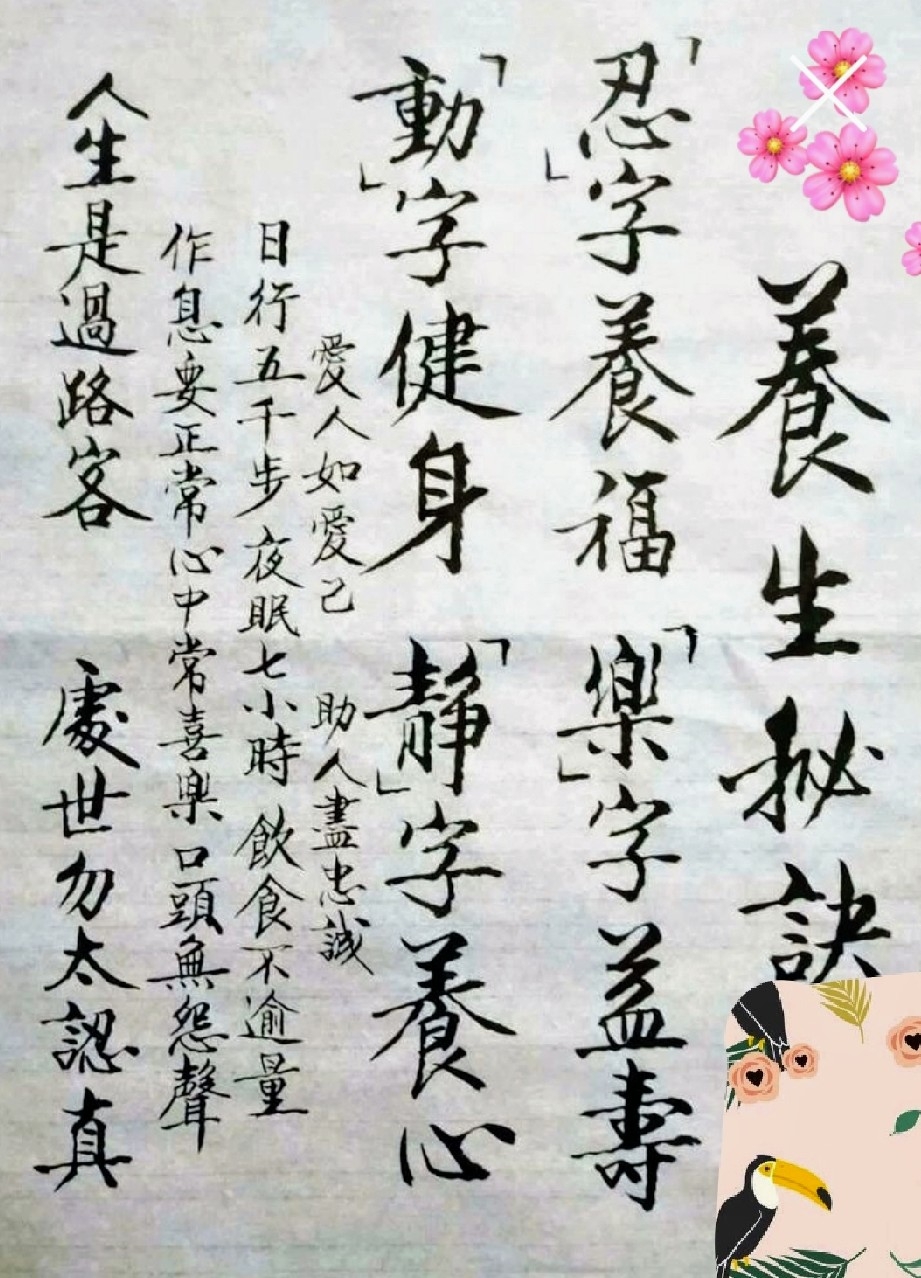 養生秘訣
「忍」字養福 「樂」字益壽
「動」字健身 「靜」字養心
愛人如愛己 助人盡忠誠
日行五千步夜眠七小時 飲食不逾量
作息要正常心中常喜樂 口頭無怨聲
人生是過路客 處世勿太認真